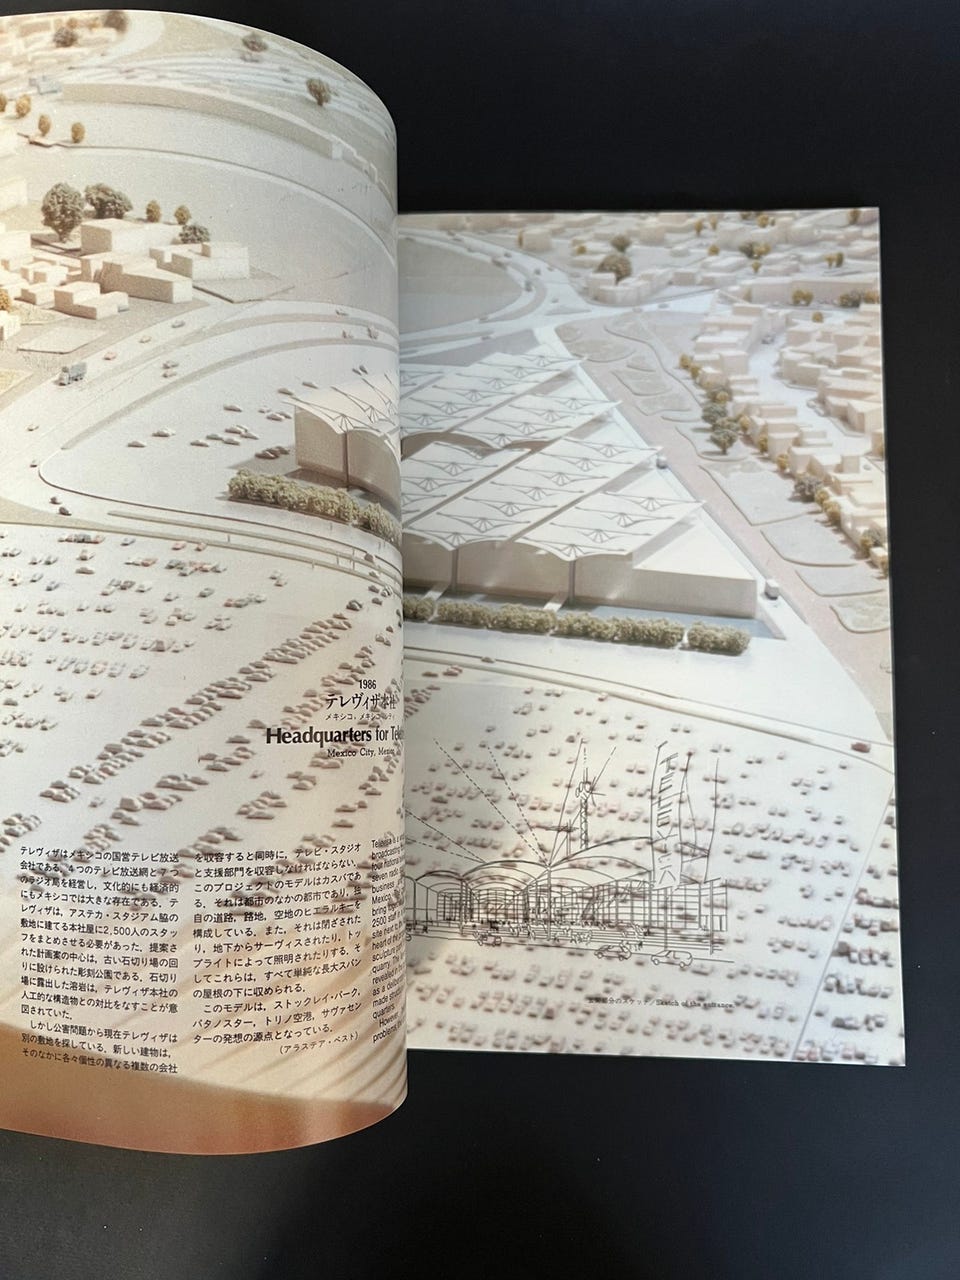 1986
テレヴィザ本社
メキシコ,メキシコ・シティ
Headquarters for
Mexico City,
テレヴィザはメキシコの国営テレビ放送
会社である。4つのテレビ放送網と7つ
のラジオ局を経営し,文化的にも経済的
にもメキシコでは大きな存在である。テ
レヴィザは,アステカ・スタジアム脇の
敷地に建てる本社屋に2,500人のスタッ
フをまとめさせる必要があった。提案さ
れた計画案の中心は,古い石切り場の回
りに設けられた彫刻公園である。石切り
場に露出した溶岩は,テレヴィザ本社の
人工的な構造物との対比をなすことが意
図されていた。
しかし公害問題から現在テレヴィザは
別の敷地を探している。新しい建物は,
そのなかに各々個性の異なる複数の会社
を収容すると同時に,テレビ・スタジオ
と支援部門を収容しなければならない。
このプロジェクトのモデルはカスバであ
る。それは都市のなかの都市であり,独
自の道路,路地,空地のヒエラルキーを
構成している。また,それは閉ざされた
り,地下からサーヴィスされたり,トッ
プライトによって照明されたりする。そ
してこれらは,すべて単純な長大スパン
の屋根の下に収められる。
このモデルは,ストックレイ・パーク,
パタノスター,トリノ空港,サヴァセン
ターの発想の源点となっている。
(アラステア・ベスト)
Televisa is a
broadcasting
four national
seven radio
business
Mexico.
bring the
2500 staff in
site next to
heart of the
sculpture
quarry. The
revealed in the
as a deliberate
made
quarters.
However,
problems
TELEVISA
玄関部分のスケッチ/Sketch of the entrance.